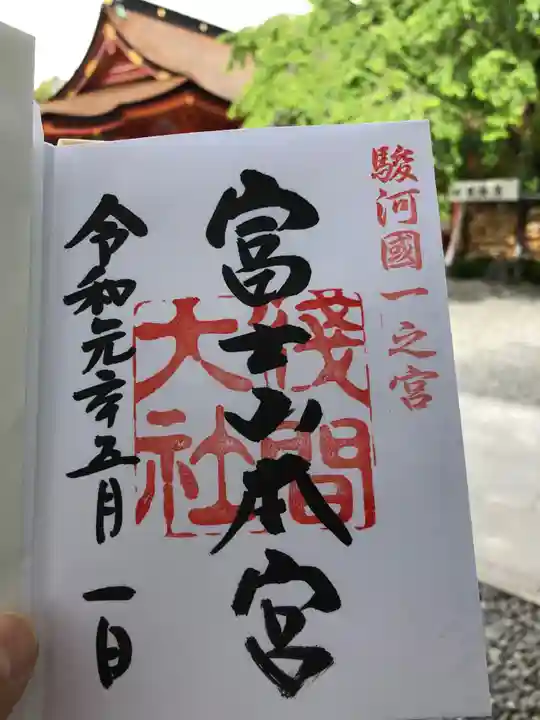 駿河國一之宮
富士山本宮
淺間大社
令和元年五月一日